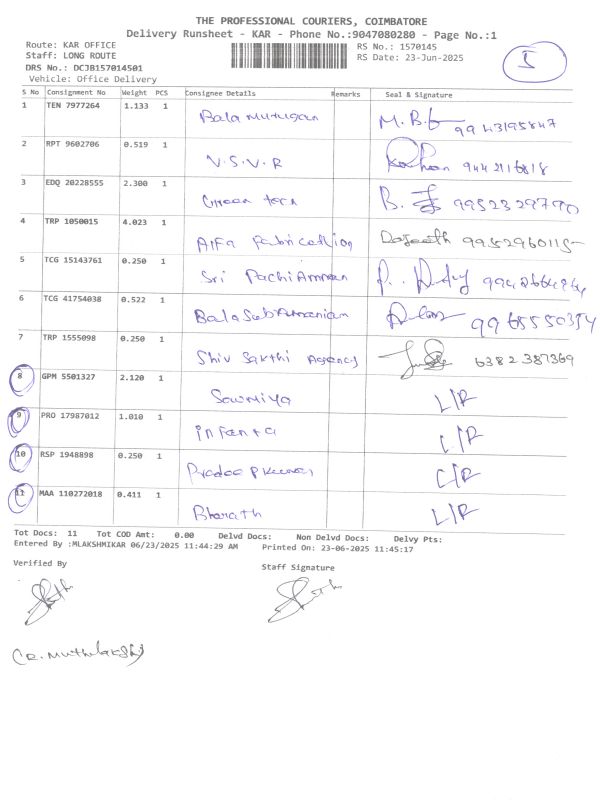 THE PROFESSIONAL COURIERS, COIMBATORE
Delivery Runsheet - KAR - Phone No.:9047080280 - Page No.:1
Route: KAR OFFICE
Staff: LONG ROUTE
DRS No.: DCJB157014501
Vehicle: Office Delivery
RS No.: 1570145
RS Date: 23-Jun-2025
I
S No Consignment No Weight PCS Consignee Details Remarks Seal & Signature
1 TEN 7977264 1.133 1 Bala murugan M.B. 9943195847
2 RPT 9602706 0.519 1 V.S.V.R 9442116818
3 EDQ 20228555 2.300 1 Green tern B. 9952329790
4 TRP 1050015 4.023 1 Alfa Fabrication 9952960115
5 TCG 15143761 0.250 1 Sri PachiAmman 9942664864
6 TCG 41754038 0.522 1 BalaSubramanian 9965550354
7 TRP 1555098 0.250 1 Shiv Sakthi Agency 6382387369
8 GPM 5501327 2.120 1 Sowmiya L/R
9 PRO 17987012 1.010 1 infanta L/R
10 RSP 1948898 0.250 1 Pradeepkumar L/R
11 MAA 110272018 0.411 1 Bharath L/R
Tot Docs: 11 Tot COD Amt: 0.00 Delvd Docs: Non Delvd Docs: Delvy Pts:
Entered By :MLAKSHMIKAR 06/23/2025 11:44:29 AM Printed On: 23-06-2025 11:45:17
Verified By
Staff Signature